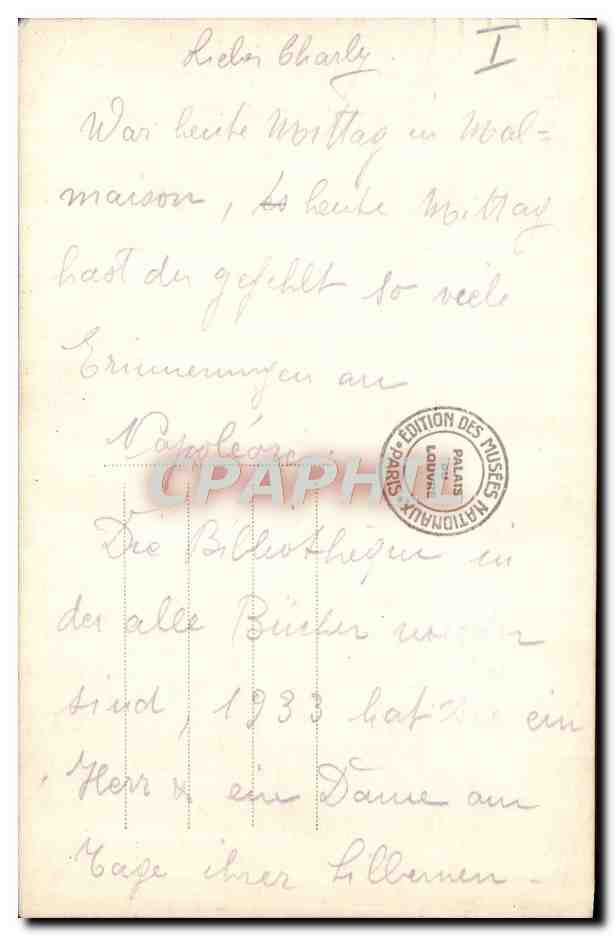 Lieber Charly.
I
War heute Mittag in Mal=
maison, heute Mittag
hast du gefehlt so viele
Erinnerungen an
Napoléon.
ÉDITION DES MUSÉES NATIONAUX • PARIS •
PALAIS
DU
LOUVRE
CPAPHIL
Die Bibliothèque in
der alle Bücher
sind, 1933 hat ein
Herr & eine Dame am
Tage ihrer silbernen -